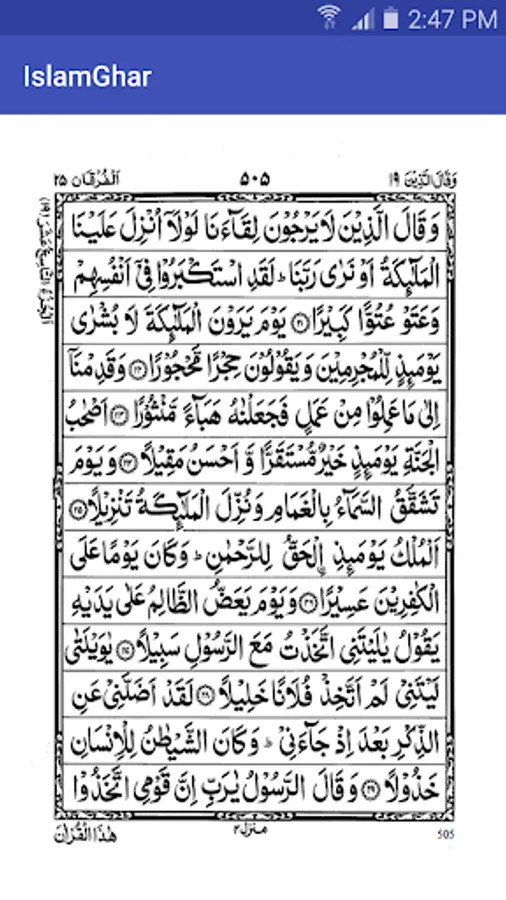 2:47 PM
IslamGhar
وَقَالَ الَّذِیْنَ ١٩ ٥٠٥ اَلْفُرْقَان ٢٥
وَقَالَ الَّذِیْنَ لَا یَرْجُوْنَ لِقَآءَنَا لَوْلَاۤ اُنْزِلَ عَلَیْنَا
الْمَلٰٓىِٕكَةُ اَوْ نَرٰی رَبَّنَا ؕ لَقَدِ اسْتَكْبَرُوْا فِیْۤ اَنْفُسِهِمْ
وَعَتَوْ عُتُوًّا كَبِیْرًا ﴿٢١﴾ یَوْمَ یَرَوْنَ الْمَلٰٓىِٕكَةَ لَا بُشْرٰی
یَوْمَىِٕذٍ لِّلْمُجْرِمِیْنَ وَیَقُوْلُوْنَ حِجْرًا مَّحْجُوْرًا ﴿٢٢﴾ وَقَدِمْنَاۤ
اِلٰی مَا عَمِلُوْا مِنْ عَمَلٍ فَجَعَلْنٰهُ هَبَآءً مَّنْثُوْرًا ﴿٢٣﴾ اَصْحٰبُ
الْجَنَّةِ یَوْمَىِٕذٍ خَیْرٌ مُّسْتَقَرًّا وَّ اَحْسَنُ مَقِیْلًا ﴿٢٤﴾ وَیَوْمَ
تَشَقَّقُ السَّمَآءُ بِالْغَمَامِ وَنُزِّلَ الْمَلٰٓىِٕكَةُ تَنْزِیْلًا ﴿٢٥﴾
اَلْمُلْكُ یَوْمَىِٕذِ ِ۟الْحَقُّ لِلرَّحْمٰنِ ؕ وَكَانَ یَوْمًا عَلَی
الْكٰفِرِیْنَ عَسِیْرًا ﴿٢٦﴾ وَیَوْمَ یَعَضُّ الظَّالِمُ عَلٰی یَدَیْهِ
یَقُوْلُ یٰلَیْتَنِی اتَّخَذْتُ مَعَ الرَّسُوْلِ سَبِیْلًا ﴿٢٧﴾ یٰوَیْلَتٰی
لَیْتَنِیْ لَمْ اَتَّخِذْ فُلَانًا خَلِیْلًا ﴿٢٨﴾ لَقَدْ اَضَلَّنِیْ عَنِ
الذِّكْرِ بَعْدَ اِذْ جَآءَنِیْ ؕ وَكَانَ الشَّیْطٰنُ لِلْاِنْسَانِ
خَذُوْلًا ﴿٢٩﴾ وَقَالَ الرَّسُوْلُ یٰرَبِّ اِنَّ قَوْمِی اتَّخَذُوْا
505 منزل ٤ هٰذَا الْقُرْاٰنَ